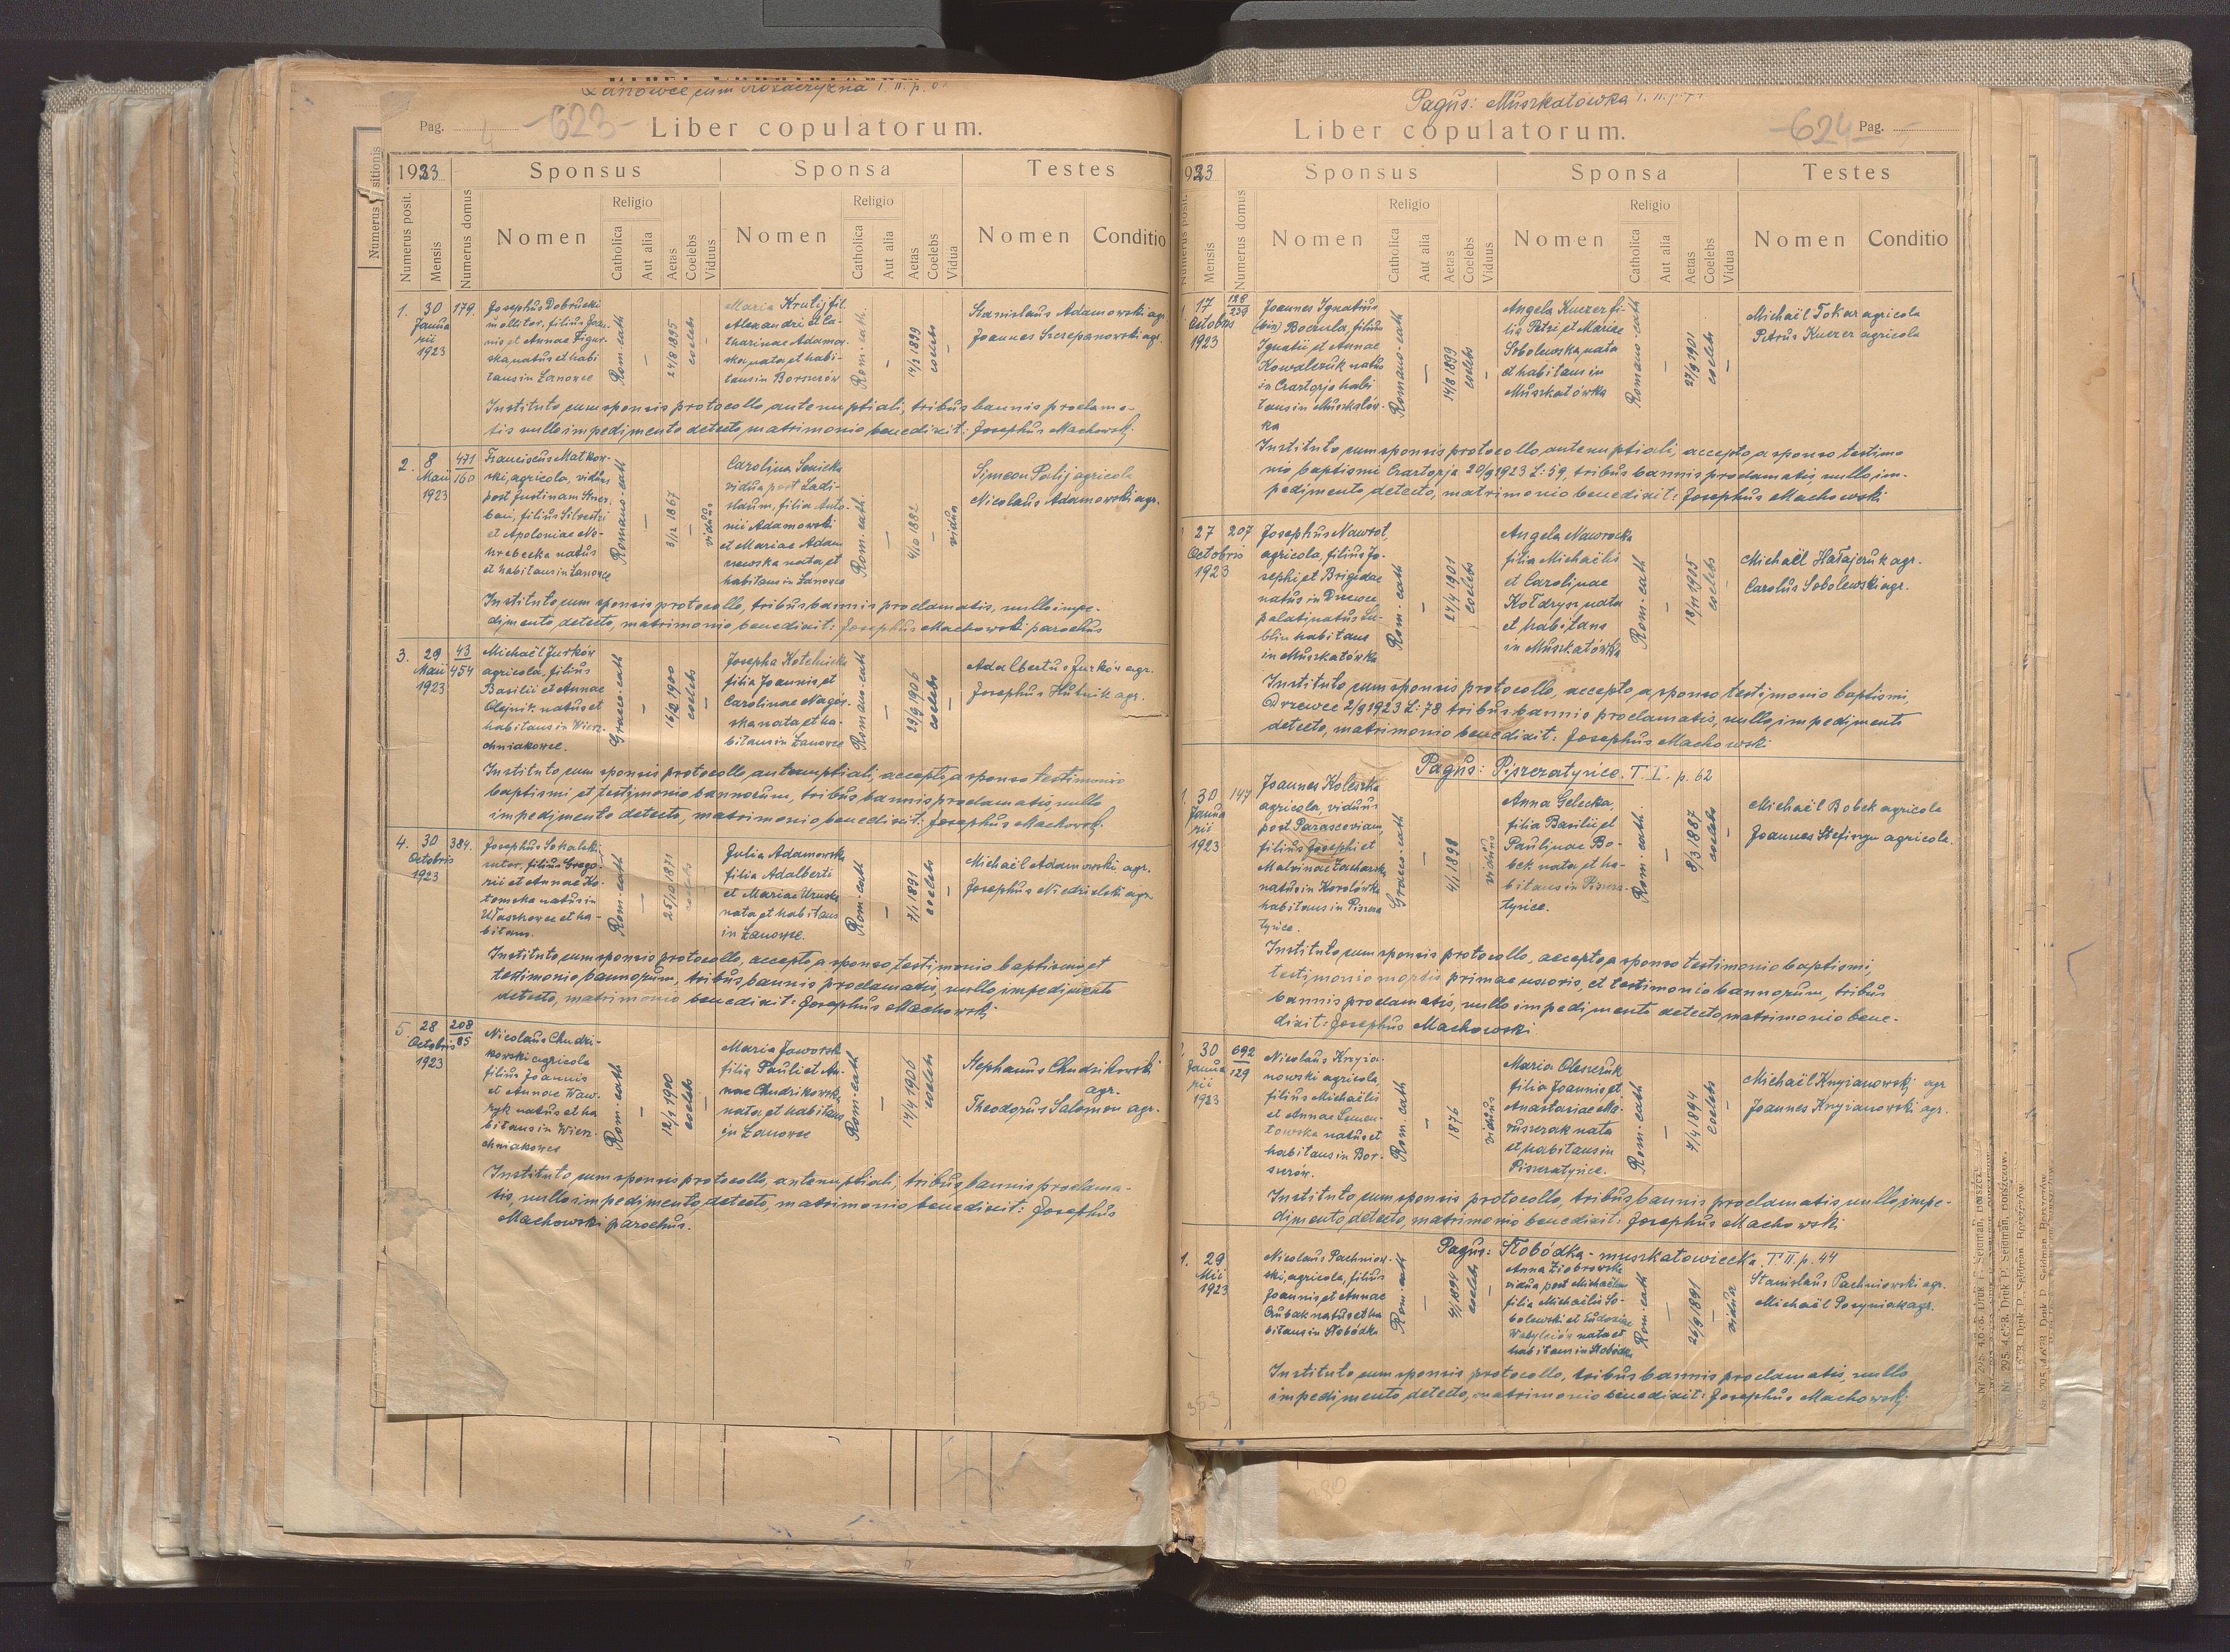 Łanowce cum Kozaczyzna T. II. p.
Pag. -623- Liber copulatorum.
1923 Sponsus Sponsa Testes
Numerus posit. Mensis Numerus domus Nomen Religio Catholica Aut alia Aetas Coelebs Viduus Nomen Religio Catholica Aut alia Aetas Coelebs Vidua Nomen Conditio
1. 30 Januarii 1923 179.
Josephus Dobrucki
molitor, filius Joan-
nis et Annae Figur-
ska, natus et habi
tans in Łanowce
Rom. cath
—
24/8 1895
coelebs
—
Maria Krutij fil.
Alexandri et Ca-
tharinae Adamow-
ska, nata et habi-
tans in Borszczów
Rom. cath.
—
14/2 1899
coelebs
—
Stanislaus Adamowski agr.
Joannes Szczepanowski agr.
Instituto cum sponsis protocollo antenuptiali, tribus bannis proclama-
tis nullo impedimento detecto, matrimonio benedixit: Josephus Machowski
2. 8 Maii 1923 471/160
Franciscus Matkow-
ski, agricola, viduus
post Justinam
filius Silvestri
et Apoloniae
natus
et habitans in Łanowce
Romano-cath
—
3/12 1867
—
viduus
Carolina Senicka
vidua post Ladi-
slaum, filia Anto-
nii Adamowski
et Mariae Adam
czewska nata et
habitans in Łanowce
Rom. cath.
—
4/10 1882
—
vidua
Simeon Palij agricola
Nicolaus Adamowski agr.
Instituto cum sponsis protocollo, tribus bannis proclamatis, nullo impe-
dimento detecto, matrimonio benedixit: Josephus Machowski parochus
3. 29 Maii 1923 43/454
Michaël Jurków
agricola, filius
Basilii et Annae
Olejnik natus et
habitans in Wierz-
chniakowce.
Graeco-cath
—
16/2 1900
coelebs
—
Josepha Kotelnicka
filia Joannis et
Carolinae Nagór-
ska nata et ha-
bitans in Łanowce
Romano-cath
—
29/9 1906
coelebs
—
Adalbertus Jurków agr.
Josephus Hutnik agr.
Instituto cum sponsis protocollo antenuptiali, accepto a sponso testimonio
baptismi et testimonio bannorum, tribus bannis proclamatis, nullo
impedimento detecto, matrimonio benedixit: Josephus Machowski.
4. 30 Octobris 1923 384.
Josephus Sokalski
sutor, filius Grego-
rii et Annae Ko-
tomska natus in
Ułaszkowce et ha-
bitans.
Rom. cath
—
25/10 1871
coelebs
Julia Adamowska
filia Adalberti
et Mariae Uruska
nata et habitans
in Łanowce.
Rom. cath
—
7/1 1891
coelebs
—
Michaël Adamowski agr.
Josephus Niedzielski agr.
Instituto cum sponsis protocollo, accepto a sponso testimonio baptismi et
testimonio bannorum, tribus bannis proclamatis, nullo impedimento
detecto, matrimonio benedixit: Josephus Machowski
5 28 Octobris 1923 208/85
Nicolaus Chudzi-
kowski agricola
filius Joannis
et Annae Waw-
ryk natus et ha
bitans in Wierz-
chniakowce
Rom. cath
—
12/1 1900
coelebs
—
Maria Jaworska
filia Pauli et An-
nae Chudzikowska
nata et habitans
in Łanowce
Rom. cath
—
17/4 1906
coelebs
Stephanus Chudzikowski
agr.
Theodorus Salomon agr.
Instituto cum sponsis protocollo, antenuptiali, tribus bannis proclama-
tis, nullo impedimento detecto, matrimonio benedixit: Josephus
Machowski parochus.
Pagus: Muszkatówka T. II. p.
Liber copulatorum. -624- Pag.
1923 Sponsus Sponsa Testes
Numerus posit. Mensis Numerus domus Nomen Religio Catholica Aut alia Aetas Coelebs Viduus Nomen Religio Catholica Aut alia Aetas Coelebs Vidua Nomen Conditio
1 17 Octobris 1923 128/239
Joannes Ignatius
(bin) Boczula, filius
Ignatii et Annae
Kowalczuk natus
in Czartorja habi
tans in Muszkatów-
ka
Romano-cath
—
14/8 1899
coelebs
—
Angela Kuczer fi-
lia Petri et Mariae
Sobolewska nata
et habitans in
Muszkatówka
Romano-cath
—
27/9 1901
coelebs
—
Michaël Tokar agricola
Petrus Kuczer agricola
Instituto cum sponsis protocollo antenuptiali, accepto a sponso testimo
nio baptismi Czartorja 20/9 1923 L: 59, tribus bannis proclamatis nullo im-
pedimento detecto, matrimonio benedixit: Josephus Machowski
27 Octobris 1923 207
Josephus Nawrot,
agricola, filius Jo-
sephi et Brigidae
natus in Drzewce
palatinatus Lu-
blin habitans
in Muszkatówka
Rom. cath
—
27/4 1901
coelebs
Angela Nawrocka
filia Michaëlis
et Carolinae
Kołdrysz nata
et habitans
in Muszkatówka
Rom. cath
—
18/11 1905
coelebs
—
Michaël Hałajczuk agr.
Carolus Sobolewski agr.
Instituto cum sponsis protocollo, accepto a sponso testimonio baptismi,
Drzewce 2/9 1923 L: 78 tribus bannis proclamatis, nullo impedimento
detecto, matrimonio benedixit: Josephus Machowski
Pagus: Piszczatyńce. T. I. p. 62
1. 30 Januarii 1923 147
Joannes Koleszka
agricola, viduus
post Parasceviam,
filius Josephi et
Malvinae Zacharska
natus in Korolówka
habitans in Piszcza
tyńce.
Graeco-cath
—
4/1 1898
viduus
Anna Gelecka,
filia Basilii et
Paulinae Bo-
bek nata et ha-
bitans in Piszcza-
tyńce.
Rom. cath.
—
8/3 1887
coelebs
—
Michaël Bobek agricola
Joannes Stefiszyn agricola.
Instituto cum sponsis protocollo, accepto a sponso testimonio baptismi,
testimonio mortis primae uxoris, et testimonio bannorum, tribus
bannis proclamatis, nullo impedimento detecto, matrimonio bene-
dixit: Josephus Machowski
2. 30 Januarii 1923 692/129
Nicolaus Knyża-
nowski agricola,
filius Michaëlis
et Annae Lewen-
towska natus et
habitans in Bor-
szczów.
Rom. cath
—
1876
viduus
Maria Oleszczuk
filia Joannis et
Anastasiae
nata
et habitans in
Piszczatyńce.
Rom. cath
—
7/4 1894
coelebs
—
Michaël Knyżanowski agr
Joannes Knyżanowski agr.
Instituto cum sponsis protocollo, tribus bannis proclamatis, nullo impe-
dimento detecto, matrimonio benedixit: Josephus Machowski
Pagus: Słobódka-muszkatowiecka. T. II. p. 44
1. 29 Mii 1923
Nicolaus Pachniow-
ski, agricola, filius
Joannis et Annae
Czubak natus et ha
bitans in Słobódka
Rom. cath
—
4/1 1894
coelebs
—
Anna Ziobrowska
vidua post Michaëlem
filia Michaëlis So-
bolewski et Eudoxiae
Wasylciów nata et
habitans in Słobódka
Rom. cath
—
26/9 1891
—
vidua
Stanislaus Pachniowski agr.
Michaël Posyniak agr.
Instituto cum sponsis protocollo, tribus bannis proclamatis, nullo
impedimento detecto, matrimonio benedixit: Josephus Machowski.
353